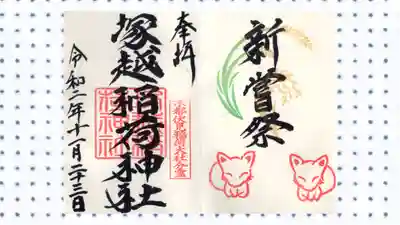 新嘗祭
奉拝
塚越稲荷神社
令和二年十一月二十三日